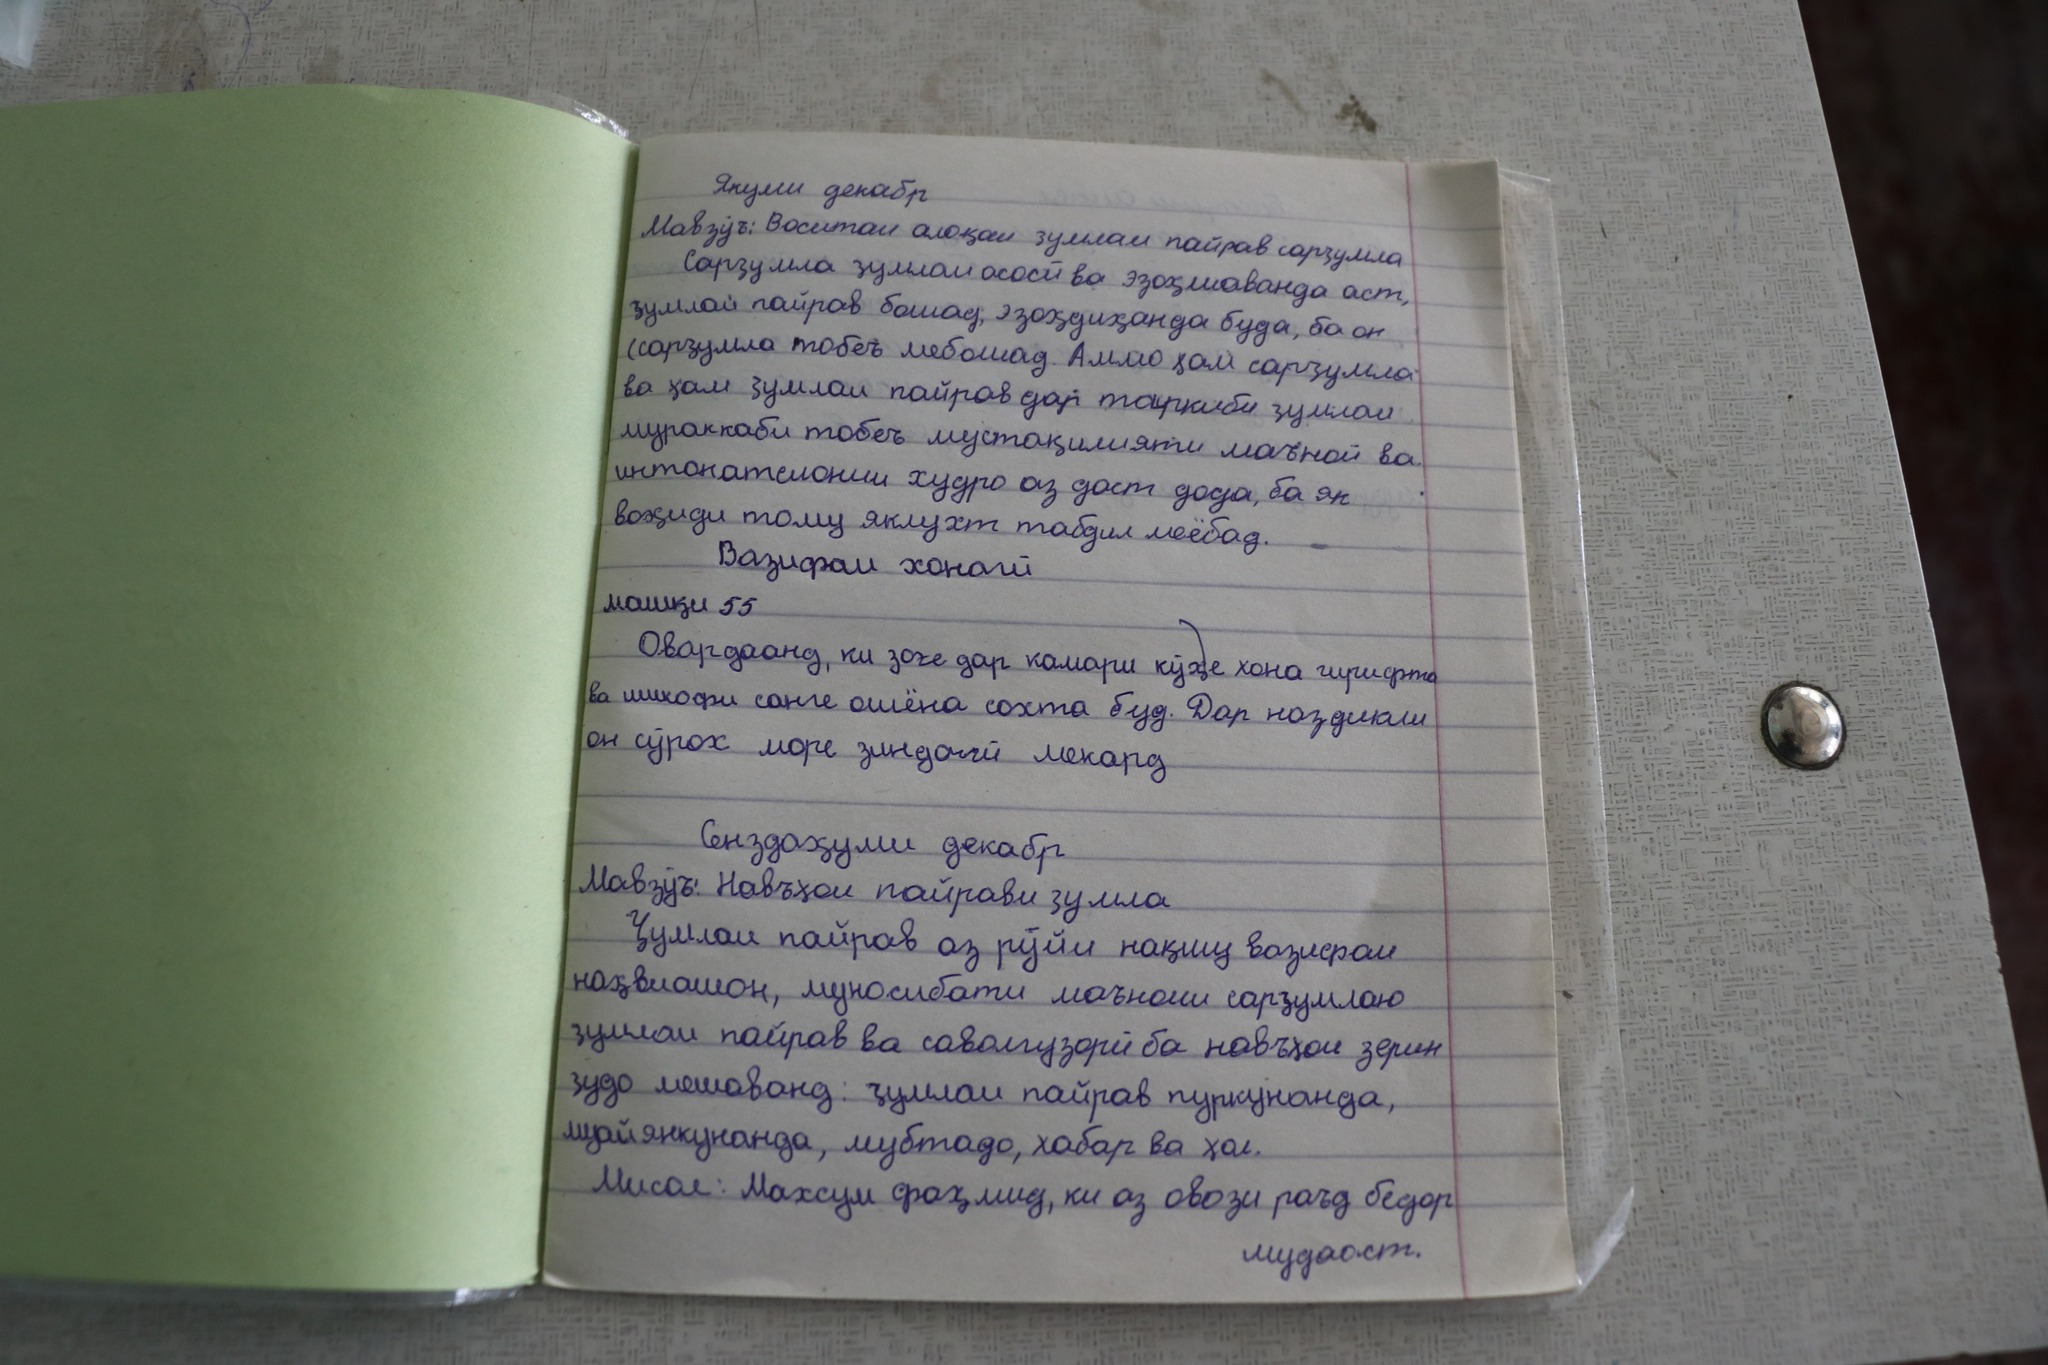 Якуми декабр
Мавзӯъ: Воситаи алоқаи ҷумлаи пайрав сарҷумла
Сарҷумла ҷумлаи асосӣ ва эзоҳшаванда аст,
ҷумлаи пайрав бошад, эзоҳдиҳанда буда, ба он
(сарҷумла тобеъ мебошад. Аммо ҳам сарҷумла
ва ҳам ҷумлаи пайрав дар таркиби ҷумлаи
мураккаби тобеъ мустақилияти маъной ва
интонатсионии худро аз даст дода, ба як
воҳиди тому яклухт табдил меёбад.
Вазифаи хонагӣ
машқи 55
Овардаанд, ки зоғе дар камари кӯҳе хона гирифта
ва шикофи санге ошёна сохта буд. Дар наздикии
он сӯрох море зиндагӣ мекард
Сенздаҳуми декабр
Мавзӯъ: Навъҳои пайрави ҷумла
Ҷумлаи пайрав аз рӯйи нақшу вазифаи
наҳвиашон, муносибати маънои сарҷумлаю
ҷумлаи пайрав ва саволгузорӣ ба навъҳои зерин
ҷудо мешаванд: ҷумлаи пайрав пуркунанда,
муайянкунанда, мубтадо, хабар ва ҳол.
Мисол: Махсум фаҳмид, ки аз овози раъд бедор
шудааст.